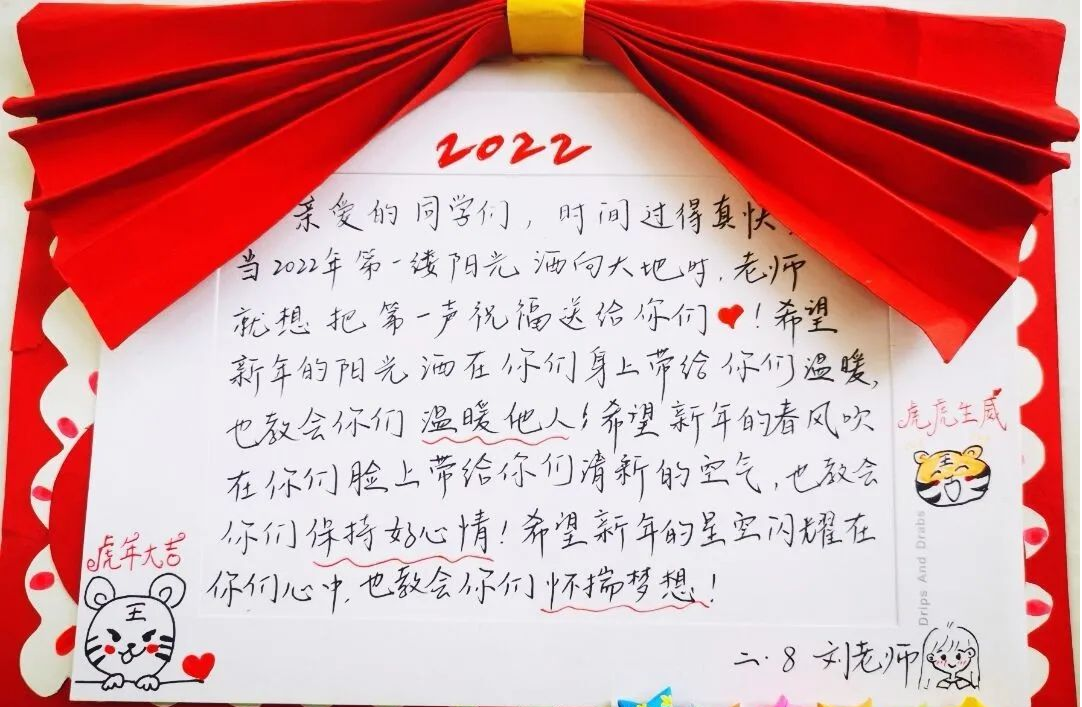 2022
亲爱的同学们，时间过得真快，
当2022年第一缕阳光洒向大地时，老师
就想把第一声祝福送给你们！希望
新年的阳光洒在你们身上带给你们温暖，
也教会你们温暖他人！希望新年的春风吹
在你们脸上带给你们清新的空气，也教会
你们保持好心情！希望新年的星空闪耀在
你们心中，也教会你们怀揣梦想！
二·8 刘老师
虎虎生威
王
Drips And Drabs
虎年大吉
王